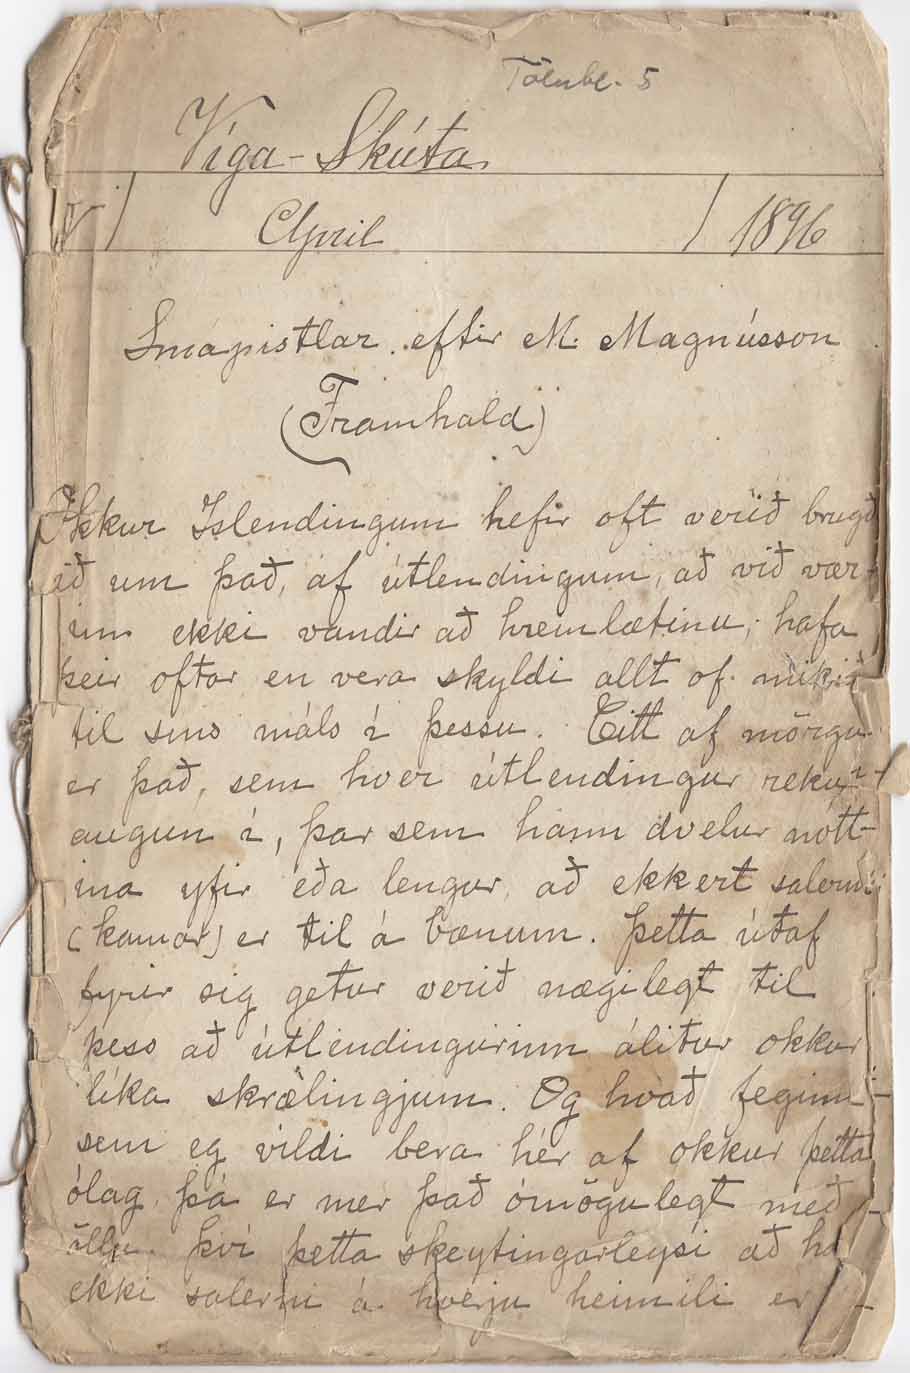 Tölubl. 5
Víga-Skúta.
V | Apríl | 1896
Smápistlar eftir M. Magnússon
(Framhald)
Okkur Islendingum hefir oft verið brugð
ið um það, af útlendingum, að við vær-
um ekki vandir að hreinlætinu; hafa
þeir oftar en vera skyldi allt of mikið
til síns máls í þessu. Eitt af mörgu
er það, sem hver útlendingur rekur
augun í, þar sem hann dvelur nótt-
ina yfir eða lengur, að ekkert salerni
(kamar) er til á bænum. Þetta útaf
fyrir sig getur verið nægilegt til
þess að útlendingurinn álitur okkur
líka skrælingjum. Og hvað feginn
sem eg vildi bera hér af okkur þetta
ólag, þá er mer það ómögulegt með
öllu. Því þetta skeytingarleysi að ha
ekki salerni á hverju heimili er